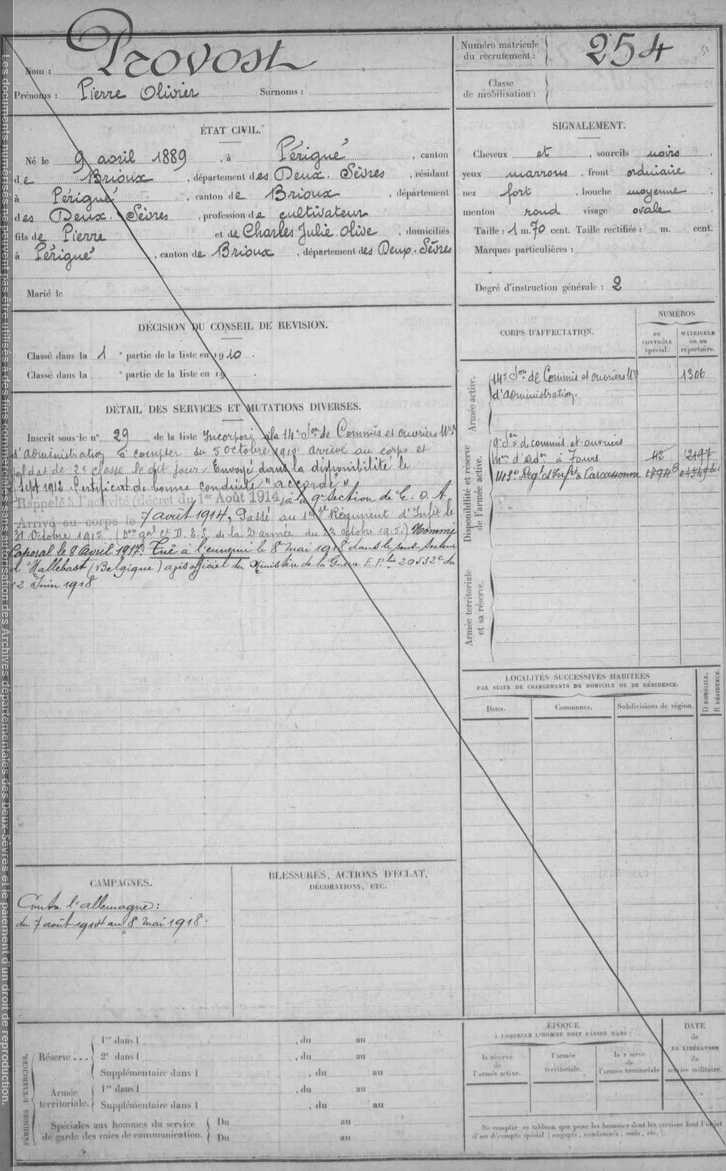 Nom : Provost
Prénoms : Pierre Olivier Surnoms :
Numéro matricule du recrutement : 254
Classe de mobilisation :
ÉTAT CIVIL.
Né le 9 avril 1889, à Périgné, canton
de Brioux, département des Deux-Sèvres, résidant
à Périgné, canton de Brioux, département
des Deux-Sèvres, profession de cultivateur
fils de Pierre et de Charles Julie Olive, domiciliés
à Périgné, canton de Brioux, département des Deux-Sèvres
Marié le
SIGNALEMENT.
Cheveux et, sourcils noirs
yeux marrons, front ordinaire
nez fort, bouche moyenne
menton rond visage ovale
Taille : 1 m. 70 cent. Taille rectifiée : m. cent.
Marques particulières :
Degré d'instruction générale : 2
DÉCISION DU CONSEIL DE REVISION.
Classé dans la 1 e partie de la liste en 1910.
Classé dans la e partie de la liste en 19
DÉTAIL DES SERVICES ET MUTATIONS DIVERSES.
Inscrit sous le n° 29 de la liste Incorporé à la 14e Son de Commis et ouvriers Mres
d'administration à compter du 5 octobre 1910 arrivé au corps et
soldat de 2e classe le dit jour. Envoyé dans la disponibilité le
Sept 1912 Certificat de bonne conduite "accordé"
Rappelé à l'activité (décret du 1er Août 1914) à la 9e section de C. O. A.
Arrivé au corps le 7 août 1914. Passé au Régiment d'Infie le
31 Octobre 1915 Nommé
Caporal le 8 avril 1917. Tué à l'ennemi le 8 mai 1918 dans le
d'Hallebast (Belgique) avis officiel du Ministère de la Guerre
2 Juin 1918
CORPS D'AFFECTATION.
NUMÉROS
DU CONTRÔLE spécial.
MATRICULE OU DU répertoire.
Armée active.
14e Son de Commis et ouvriers Mres
d'administration. 1306
Disponibilité et réserve de l'armée active.
9e Son de commis et ouvriers
Mres d'adon à Tours
Régt d'Infie Carcassonne
Armée territoriale et sa réserve.
LOCALITÉS SUCCESSIVES HABITÉES
PAR SUITE DE CHANGEMENTS DE DOMICILE OU DE RÉSIDENCE.
Dates. Communes. Subdivisions de région. D DOMICILE. R RÉSIDENCE.
CAMPAGNES.
Contre l'Allemagne :
du 7 août 1914 au 8 mai 1918.
BLESSURES, ACTIONS D'ÉCLAT,
DÉCORATIONS, ETC.
PÉRIODES D'EXERCICES.
Réserve . . .
1re dans l , du au
2e dans l , du au
Supplémentaire dans l , du au
Armée territoriale.
1re dans l , du au
Supplémentaire dans l , du au
Spéciales aux hommes du service de garde des voies de communication.
Du au
Du au
ÉPOQUE
À LAQUELLE L'HOMME DOIT PASSER DANS :
la réserve de l'armée active.
l'armée territoriale.
la réserve de l'armée territoriale
DATE de LA LIBÉRATION du service militaire.
Les documents numérisés ne peuvent pas être utilisés à des fins commerciales sans autorisation des Archives départementales des Deux-Sèvres et le paiement d'un droit de reproduction.